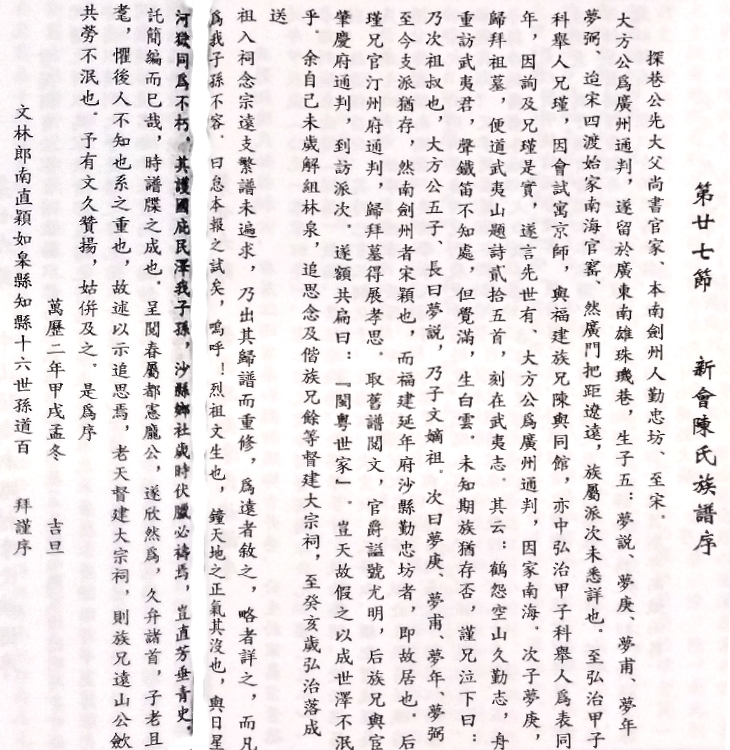 第廿七節　新會陳氏族譜序
探巷公先大父尚書官家、本南劍州人勤忠坊、至宋。
大方公爲廣州通判，遂留於廣東南雄珠璣巷，生子五：夢説、夢庚、夢甫、夢年
夢弼、迨宋四渡始家南海官窰、然廣門把距遼遠，族屬派次未悉詳也。至弘治甲子
科舉人兄瑾，因會試寓京師，與福建族兄陳輿同館，亦中弘治甲子科舉人爲表同
年，因詢及兄瑾是實，遂言先世有、大方公爲廣州通判，因家南海。次子夢庚，
歸拜祖墓，便道武夷山題詩貳拾五首，刻在武夷志。其云：鶴怨空山久勤志，舟
重訪武夷君，聲鐵笛不知處，但覺滿，生白雲。未知期族猶存否，謹兄泣下曰：
乃次祖叔也，大方公五子、長曰夢説，乃子文嫡祖。次曰夢庚、夢甫、夢年、夢弼
至今支派猶存，然南劍州者宋穎也，而福建延年府沙縣勤忠坊者，即故居也。后
瑾兄官汀州府通判，歸拜墓得展孝思。取舊譜閱文，官爵謚號尤明，后族兄輿宦
肇慶府通判，到訪派次。遂額共扁曰：『閩粵世家』。豈天故假之以成世澤不泯
乎。余自己未歲解組林泉，追思念及偕族兄餘等督建大宗祠，至癸亥歲弘治落成
送
祖入祠念宗遠支繁譜未遍求，乃出其歸譜而重修，爲遠者敘之，略者詳之，而凡
爲我子孫不容。曰怠本報之試矣，嗚呼！烈祖文生也，鐘天地之正氣其沒也，與日星
河嶽同爲不朽。其護國庇民澤我子孫，沙縣鄉社歲時伏臘必禱焉，豈直芳垂青史。
託簡編而已哉，時譜牒之成也。呈閱春屬都憲龐公，遂欣然爲，久弁諸首，子老且
耄，懼後人不知也系之重也，故述以示追思焉，老天督建大宗祠，則族兄遠山公歛
共勞不泯也。予有文久贊揚，姑併及之。是爲序
萬曆二年甲戌孟冬　吉旦
文林郎南直穎如皋縣知縣十六世孫道百　拜謹序